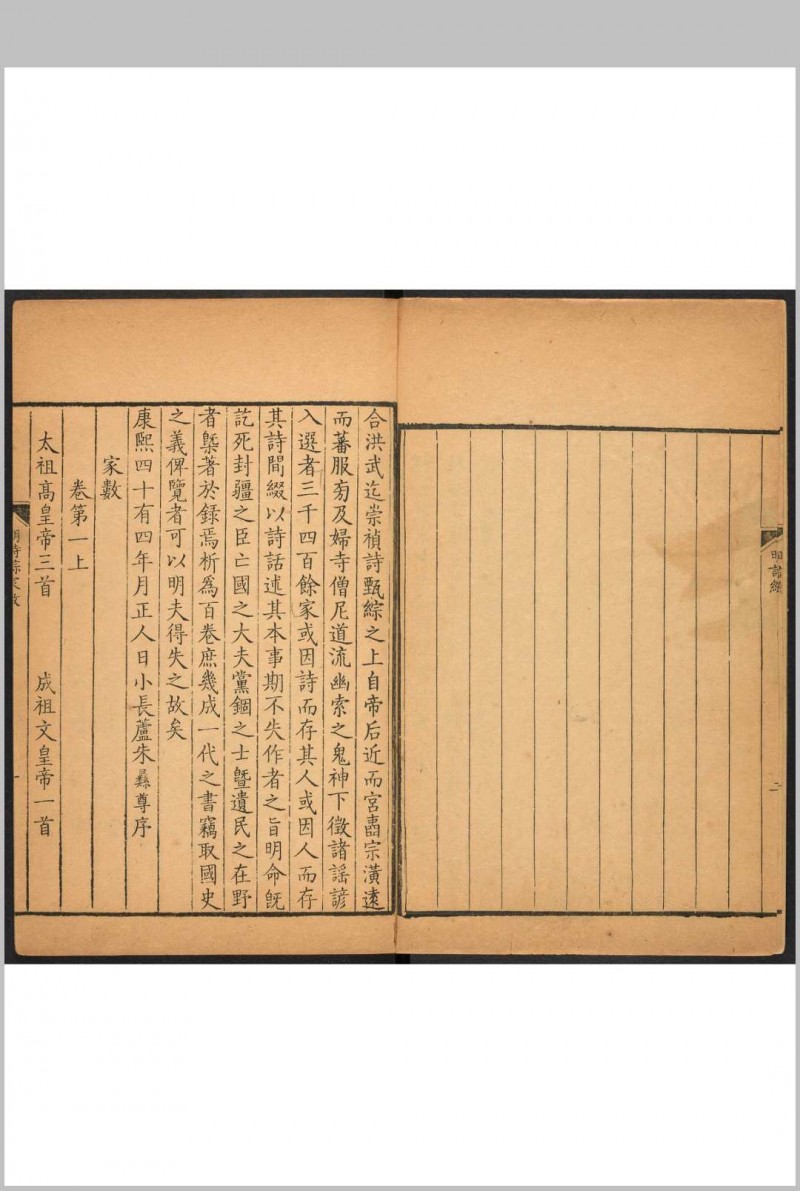 明詩綜
二
合洪武迄崇禎詩甄綜之上自帝后近而宮壼宗潢遠
而蕃服旁及婦寺僧尼道流幽索之鬼神下徵諸謡諺
入選者三千四百餘家或因詩而存其人或因人而存
其詩間綴以詩話述其本事期不失作者之旨明命旣
訖死封疆之臣亡國之大夫黨錮之士曁遺民之在野
者槩著於録焉析為百卷庶幾成一代之書竊取國史
之義俾覽者可以明夫得失之故矣
康熙四十有四年月正人日小長蘆朱彝尊序
家數
卷第一上
太祖高皇帝三首 成祖文皇帝一首
明詩綜家數
一